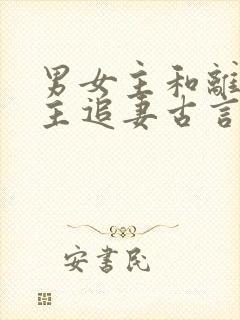 男女主和離
主追妻古言
安書民